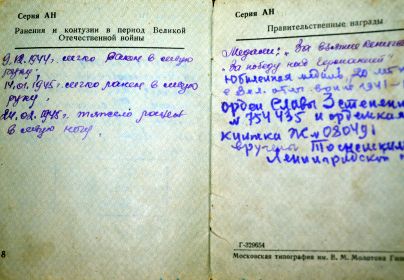 Серия АН
Ранения и контузии в период Великой
Отечественной войны
9.12.1944 г. легко ранен в левую
руку,
14.01.1945 г. легко ранен в левую
руку,
24.02.1945 г. тяжело ранен
в левую ногу,
8
Серия АН
Правительственные награды
Медали: "За взятие
"За победу над Германией"
Юбилейная медаль, 20 лет
в Вел. отеч. войне 1941-
орден Славы 3 степени
№ 754435 и орденская
книжка Ж № 080491
вручены Тосненским
Ленинградской
Г-329654
Московская типография им. В. М. Молотова